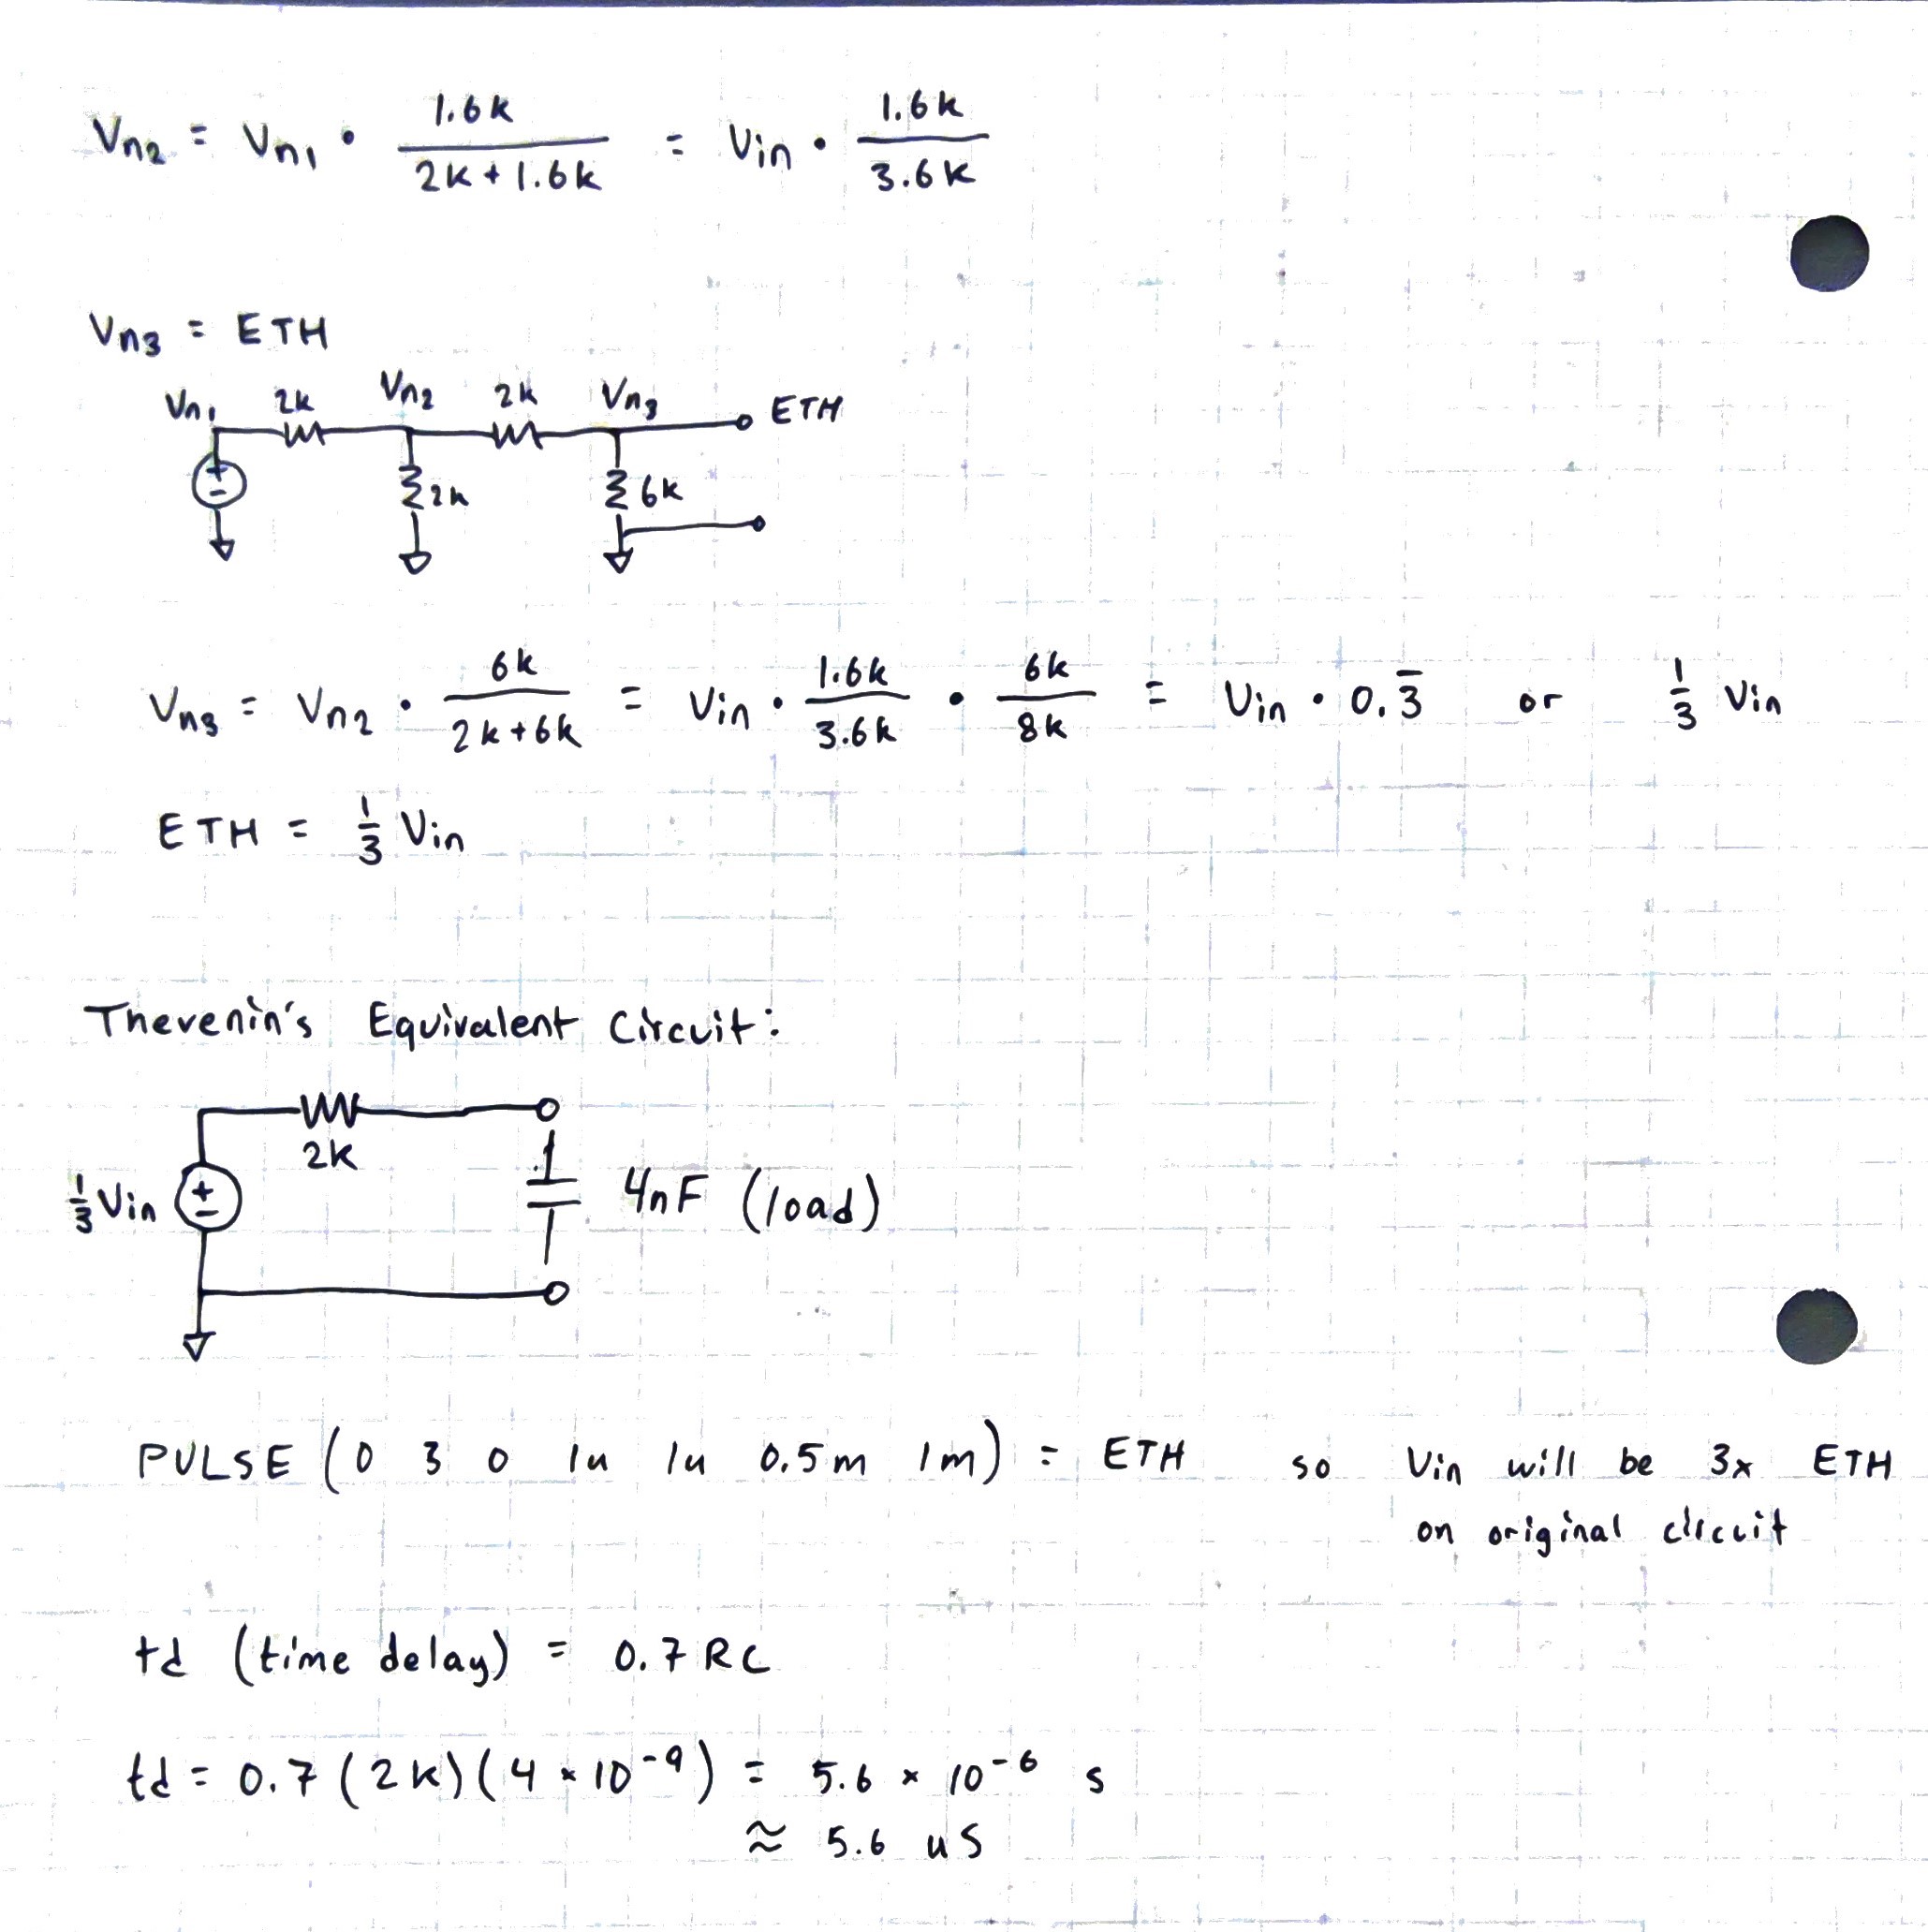 Vn2 = Vn1 • 1.6k / 2k + 1.6k = Vin • 1.6k / 3.6k
Vn3 = ETH
Vn1 2k Vn2 2k Vn3 ETH
+ - 2k 6k
Vn3 = Vn2 • 6k / 2k + 6k = Vin • 1.6k / 3.6k • 6k / 8k = Vin • 0.3̅ or 1/3 Vin
ETH = 1/3 Vin
Thevenin's Equivalent Circuit:
2k
1/3 Vin + - 4nF (load)
PULSE (0 3 0 1u 1u 0.5m 1m) = ETH so Vin will be 3x ETH
on original circuit
td (time delay) = 0.7 RC
td = 0.7 (2k)(4 × 10⁻⁹) = 5.6 × 10⁻⁶ s
≈ 5.6 uS